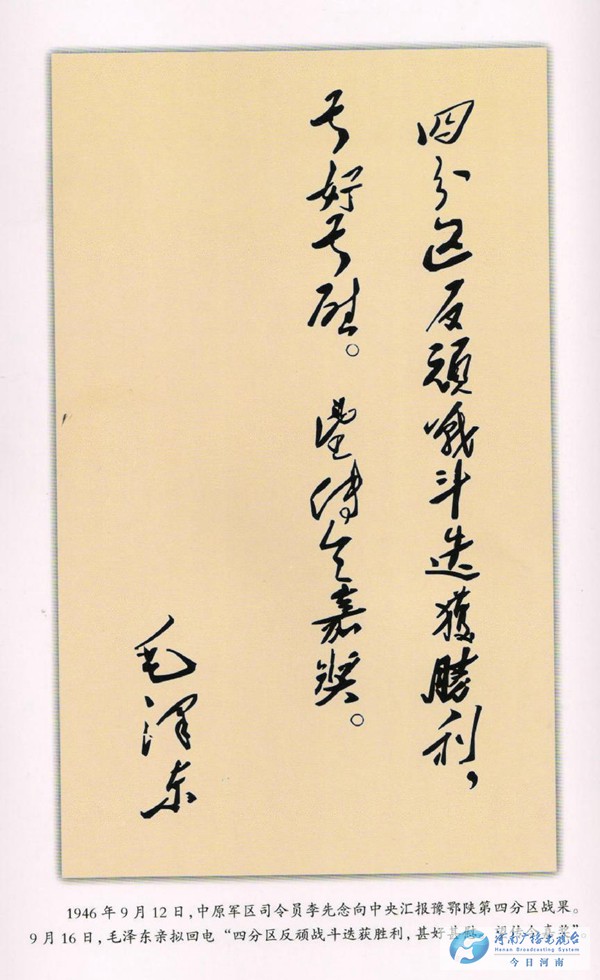 四分区反頑战斗迭獲勝利，
甚好甚慰。望傳令嘉奖。
毛泽东
1946年9月12日，中原军区司令员李先念向中央汇报豫鄂陕第四分区战果。
9月16日，毛泽东亲拟回电“四分区反顽战斗迭获胜利，甚好甚慰，望传令嘉奖”
河南广播电视台
今日河南